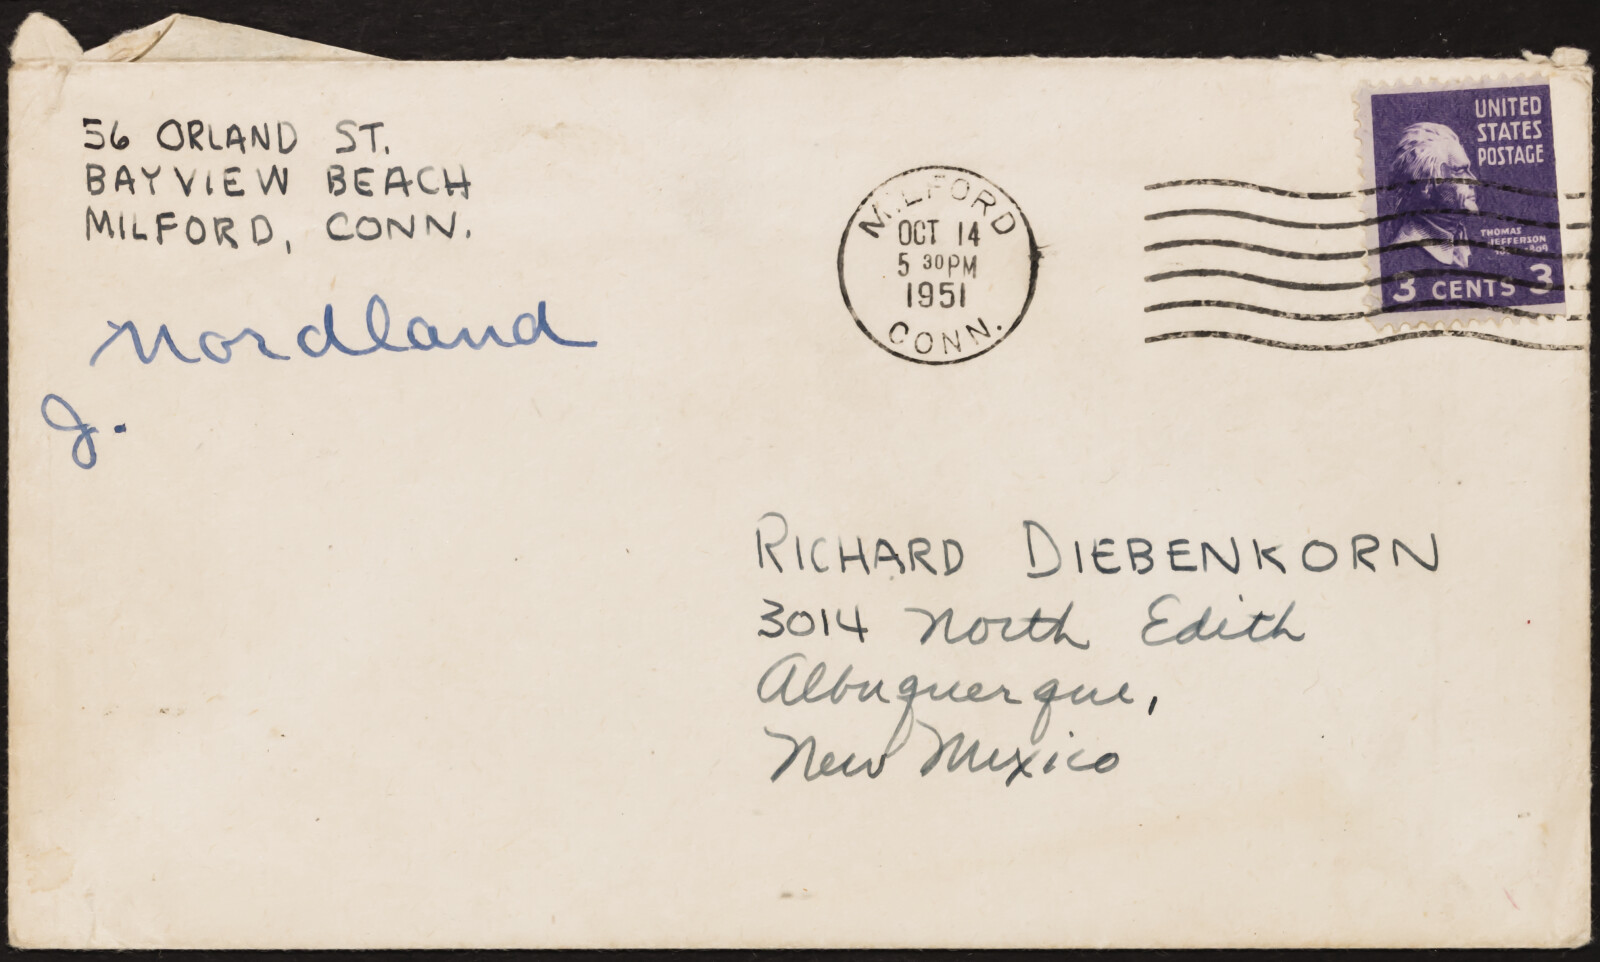 56 ORLAND ST.
BAYVIEW BEACH
MILFORD, CONN.
Nordland
J.
MILFORD
OCT 14
5 30 PM
1951
CONN.
UNITED
STATES
POSTAGE
THOMAS
JEFFERSON
3 CENTS 3
RICHARD DIEBENKORN
3014 North Edith
Albuquerque,
New Mexico